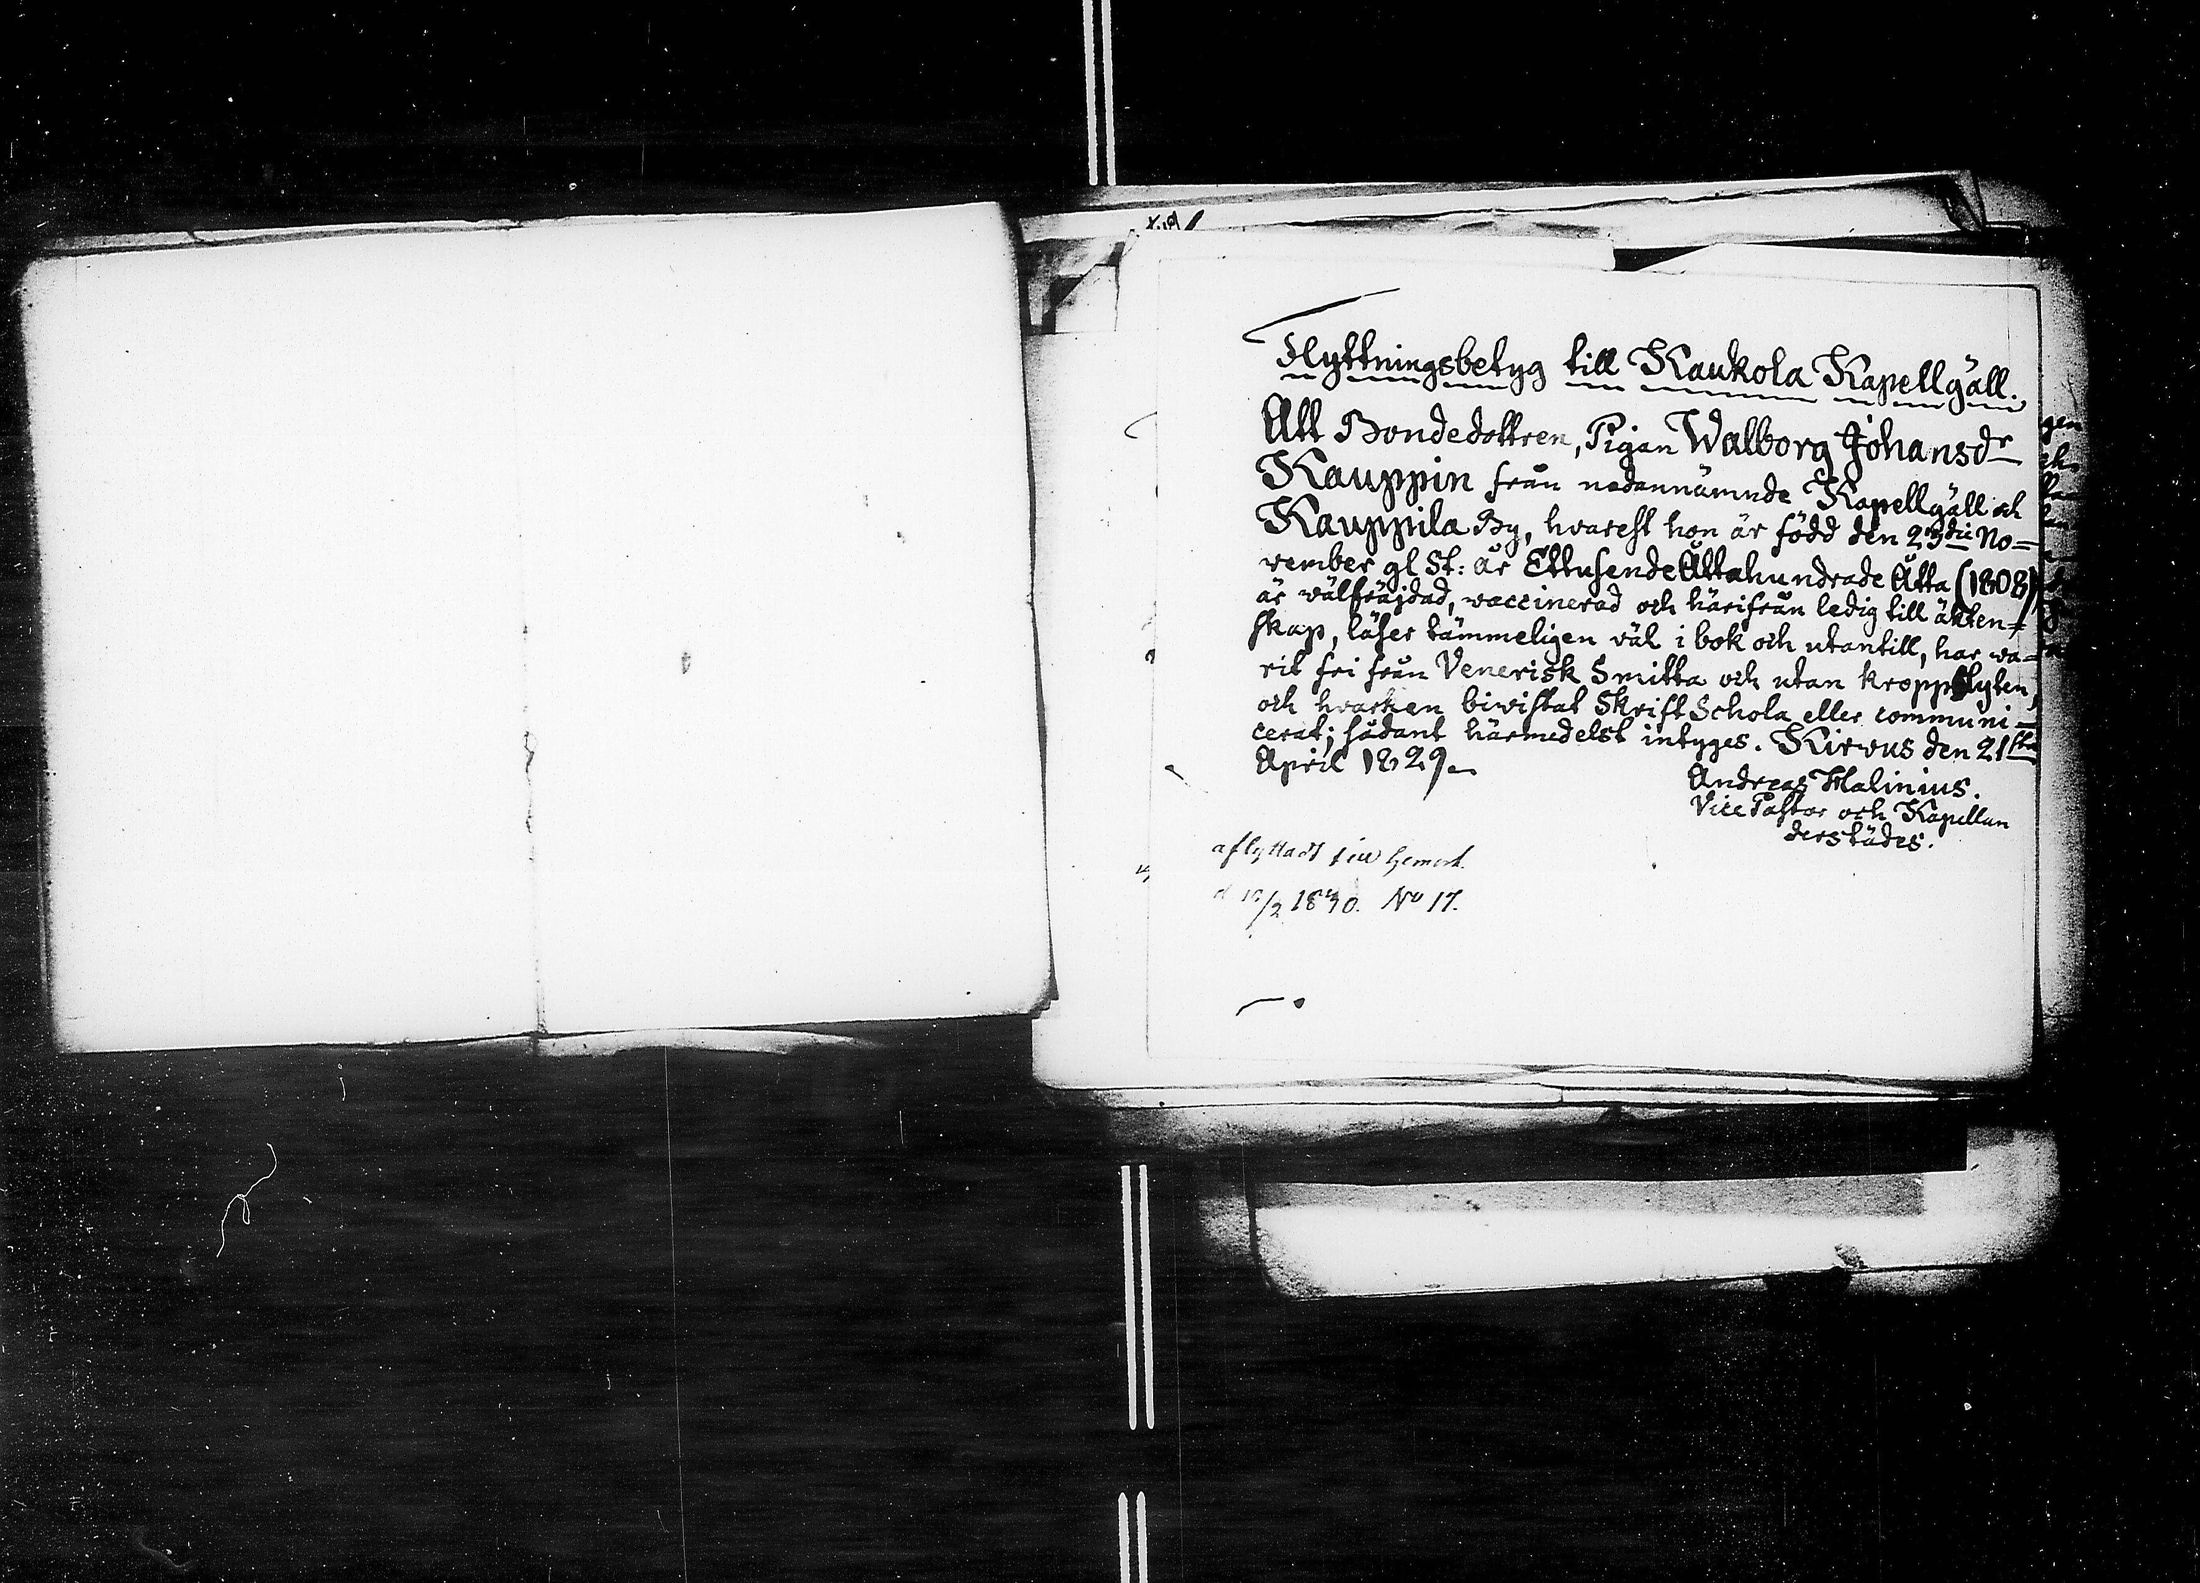 Flyttningsbetyg till Kaukola Kapellgäll.
Att Bondedottren, Pigan Walborg Johansdr
Kauppin från nedannämnde Kapellgäll och
Kauppila By, hvarest hon är född den 23die No=
vember gl St: år EttusendeÅttahundrade Åtta (1808)
är välfräjdad, vaccinerad och härifrån ledig till äkten=
skap, läser tämmeligen väl i bok och utantill, har va=
rit fri från Venerisk Smitta och utan kroppslyten,
och hvarken bivistat Skrift Schola eller communi=
cerat; sådant härmedelst intyges. Kirvus den 21sta
April 1829.
Andreas Malinius.
Vice Pastor och Kapellan
derstädes.
aflyttadt hemort.
d /2 1830. No 17.